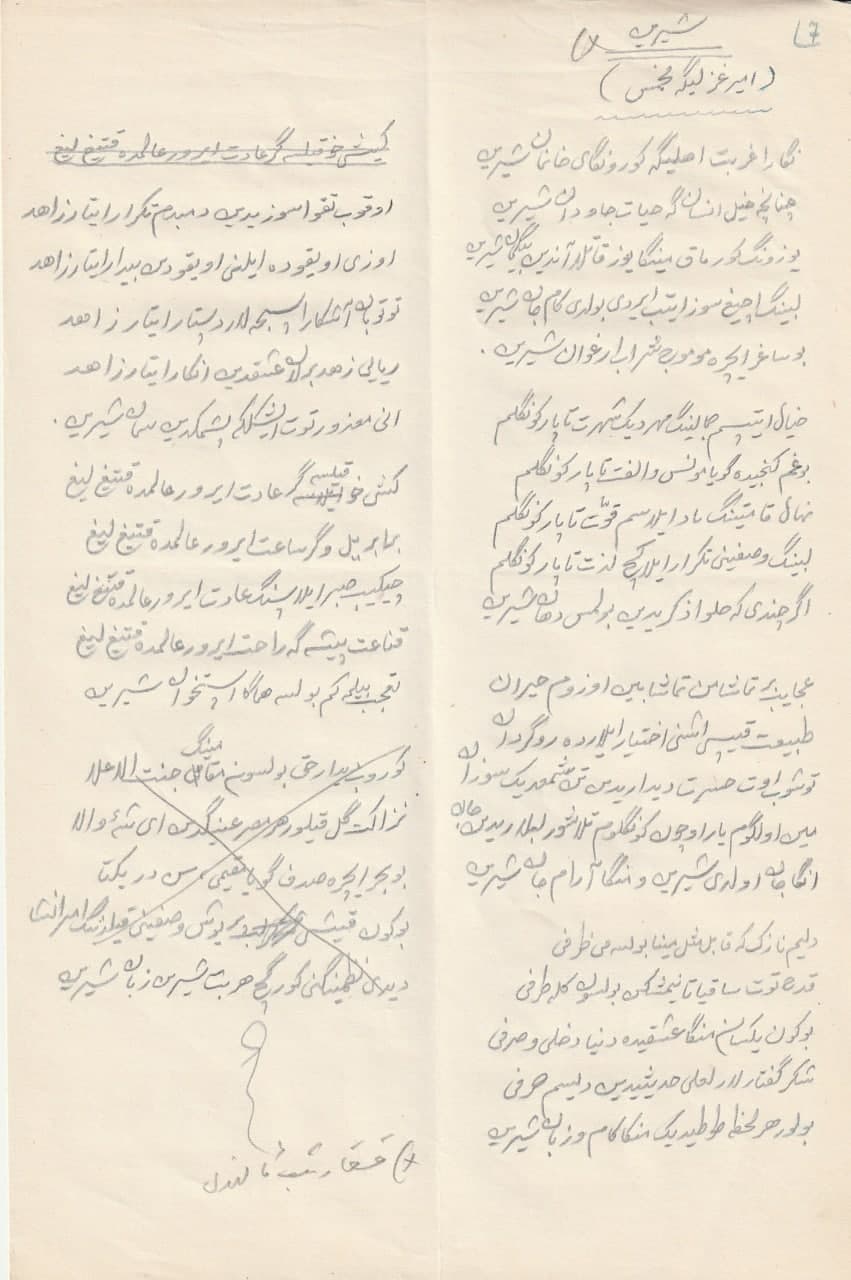 7
شیرین
(امیر غزلیگه مخمس)
نگارا غربت اهلیگه کورونگای خانمان شیرین
چنانچه خیل انسان گه حیات جاودان شیرین
یوزونگ کورماق مینگا یوز قاتلار آندین بیگمان شیرین
لبینگ اچیغ سوز ایتب ایردی بولدی کام جان شیرین
بو ساغر ایچره موج شراب ارغوان شیرین.
خیال ایتسم جمالینگ مهر دیک شهرت تاپار کونگلم
بو غم کنجیده گویا مونس و الفت تاپار کونگلم
نهال قامتینگ یاد ایلارسم قوّت تاپار کونگلم
لبینگ وصفینی تکرار ایلارگچ لذت تاپار کونگلم
اگر چندی که حلوا ذکریدین بولمس دهان شیرین
عجایب بر تماشا من تماشابین اوزوم حیران
طبیعت قیسی اشنی اختیار ایلارده روگردان
توشوب اوت حسرت دیداریدین تن شمعدیک سوزان
مین اولگوم یار اوچون کونگلوم تلاشور لبلاریدین جان
انگا جان اولدی شیرین و منگا آرام جان شیرین
دلیم نازک که قابل مثل مینا بولسه می ظرفی
قدح توت ساقیا تا نیمشکن بولسون کله طرفی
بوکون یکسان منگا عشقیده دنیا دخلی و صرفی
شکر گفتار لار لعلی حدیثیدین دیسم حرفی
بولور هر لحظه طوطیدیک منگا کام و زبان شیرین
کیشی خو قیلسه گر عادت ایرور عالمده قتیغ لیغ
اوقوب تقوا سوزیدین دمبدم تکرار ایتار زاهد
اوزی اویقوده ایلنی اویقودین بیدار ایتار زاهد
توتوبان آشکارا سبحه لار دستار ایتار زاهد
ریالی زهد برلان عشقدین انکار ایتار زاهد
انی معزور توت
کشی خو قیلسه گر عادت ایرور عالمده قتیغ لیغ
برابر ییل و گر ساعت ایرور عالمده قتیغ لیغ
چیکیب صبر ایلاسنگ عادت ایرور عالمده قتیغ لیغ
قناعت پیشه گه راحت ایرور عالمده قتیغ لیغ
تعجب بیلمه کم بولسه هماگا استخوان شیرین
کوروب بولسون مینگ جنت الاعلا
نزاکت گل قیلور هر ای شهٔ والا
بو بحر ایچره صدف گویا در یکتا
بوکون وصفینی
نظمینگنی کورگچ هر بیت شیرین زبان شیرین